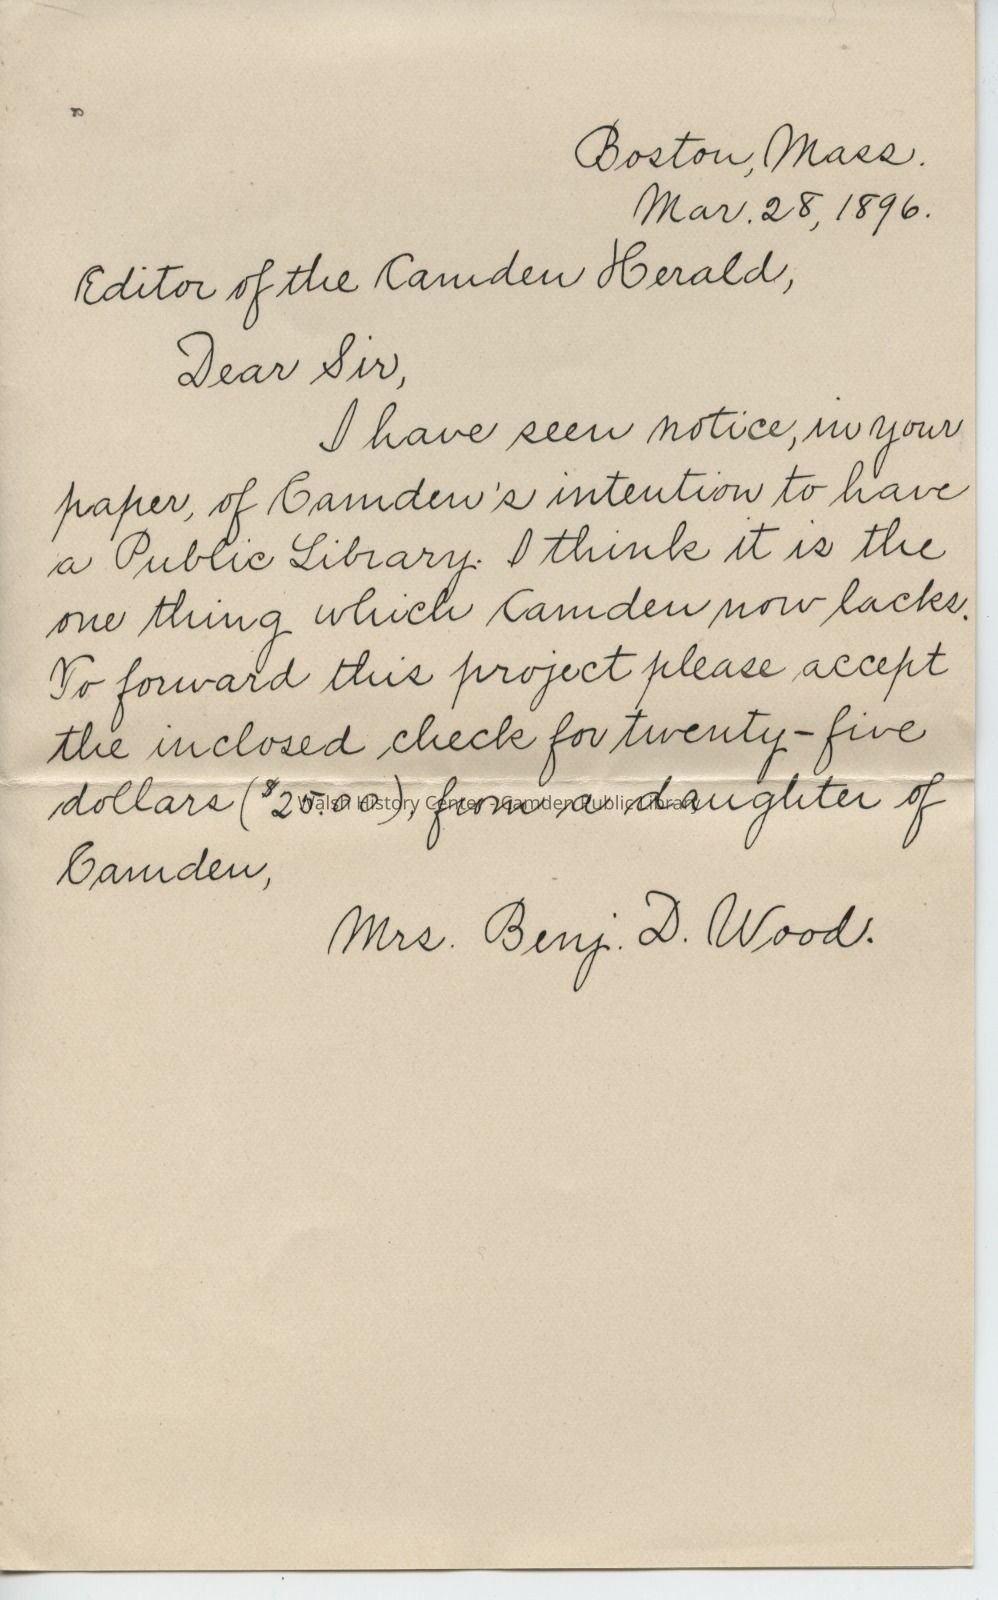 Boston, Mass.
Mar. 28, 1896.
Editor of the Camden Herald,
Dear Sir,
I have seen notice, in your
paper, of Camden's intention to have
a Public Library. I think it is the
one thing which Camden now lacks.
To forward this project please accept
the inclosed check for twenty-five
dollars ($25.00), from a daughter of
Walsh History Center - Camden Public Library
Camden,
Mrs. Benj. D. Wood.